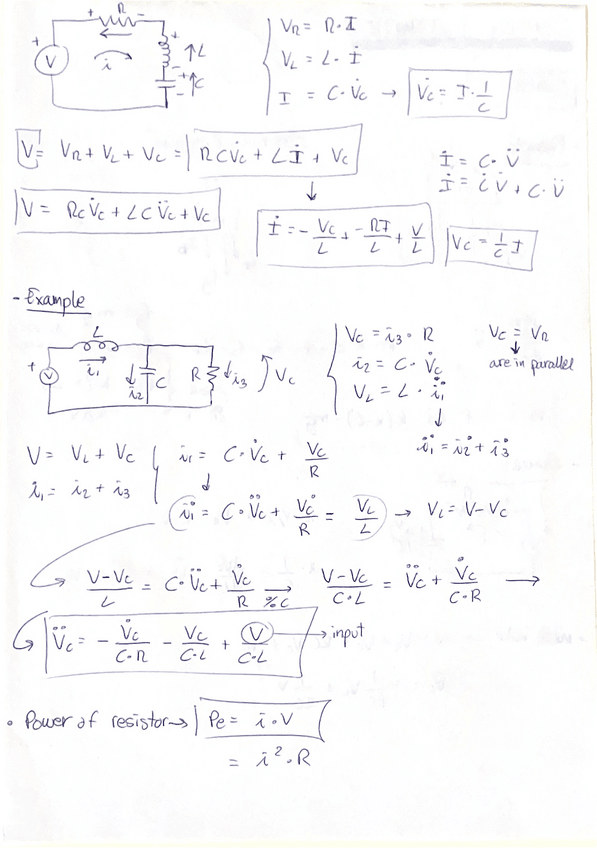 + R -
+ V
i
+
↑ L
+ ↑ C
-
V_R = R · I
V_L = L · İ
I = C · V̇_C → V̇_C = I · 1/C
V = V_R + V_L + V_C = RCV̇_C + Lİ + V_C
İ = C · V̈
İ = ĊV̇ + C · V̈
V = RCV̇_C + LCV̈_C + V_C
↓
İ = - V_C/L + -RI/L + V/L
V_C = 1/C I
- Example
L
+ V
i₁
i₂ C
R i₃ V_C
V_C = i₃ · R
i₂ = C · V̇_C
V_L = L · i̇₁
↓
i̇₁ = i̇₂ + i̇₃
V_C = V_R
↓
are in parallel
V = V_L + V_C
i₁ = i₂ + i₃
i₁ = C · V̇_C + V_C/R
↓
i̇₁ = C · V̈_C + V̇_C/R = V_L/L → V_L = V - V_C
→ V-V_C/L = C · V̈_C + V̇_C/R →%C V-V_C/C·L = V̈_C + V̇_C/C·R →
V̈_C = - V̇_C/C·R - V_C/C·L + V/C·L → input
• Power of resistor → Pe = i · V
= i² · R